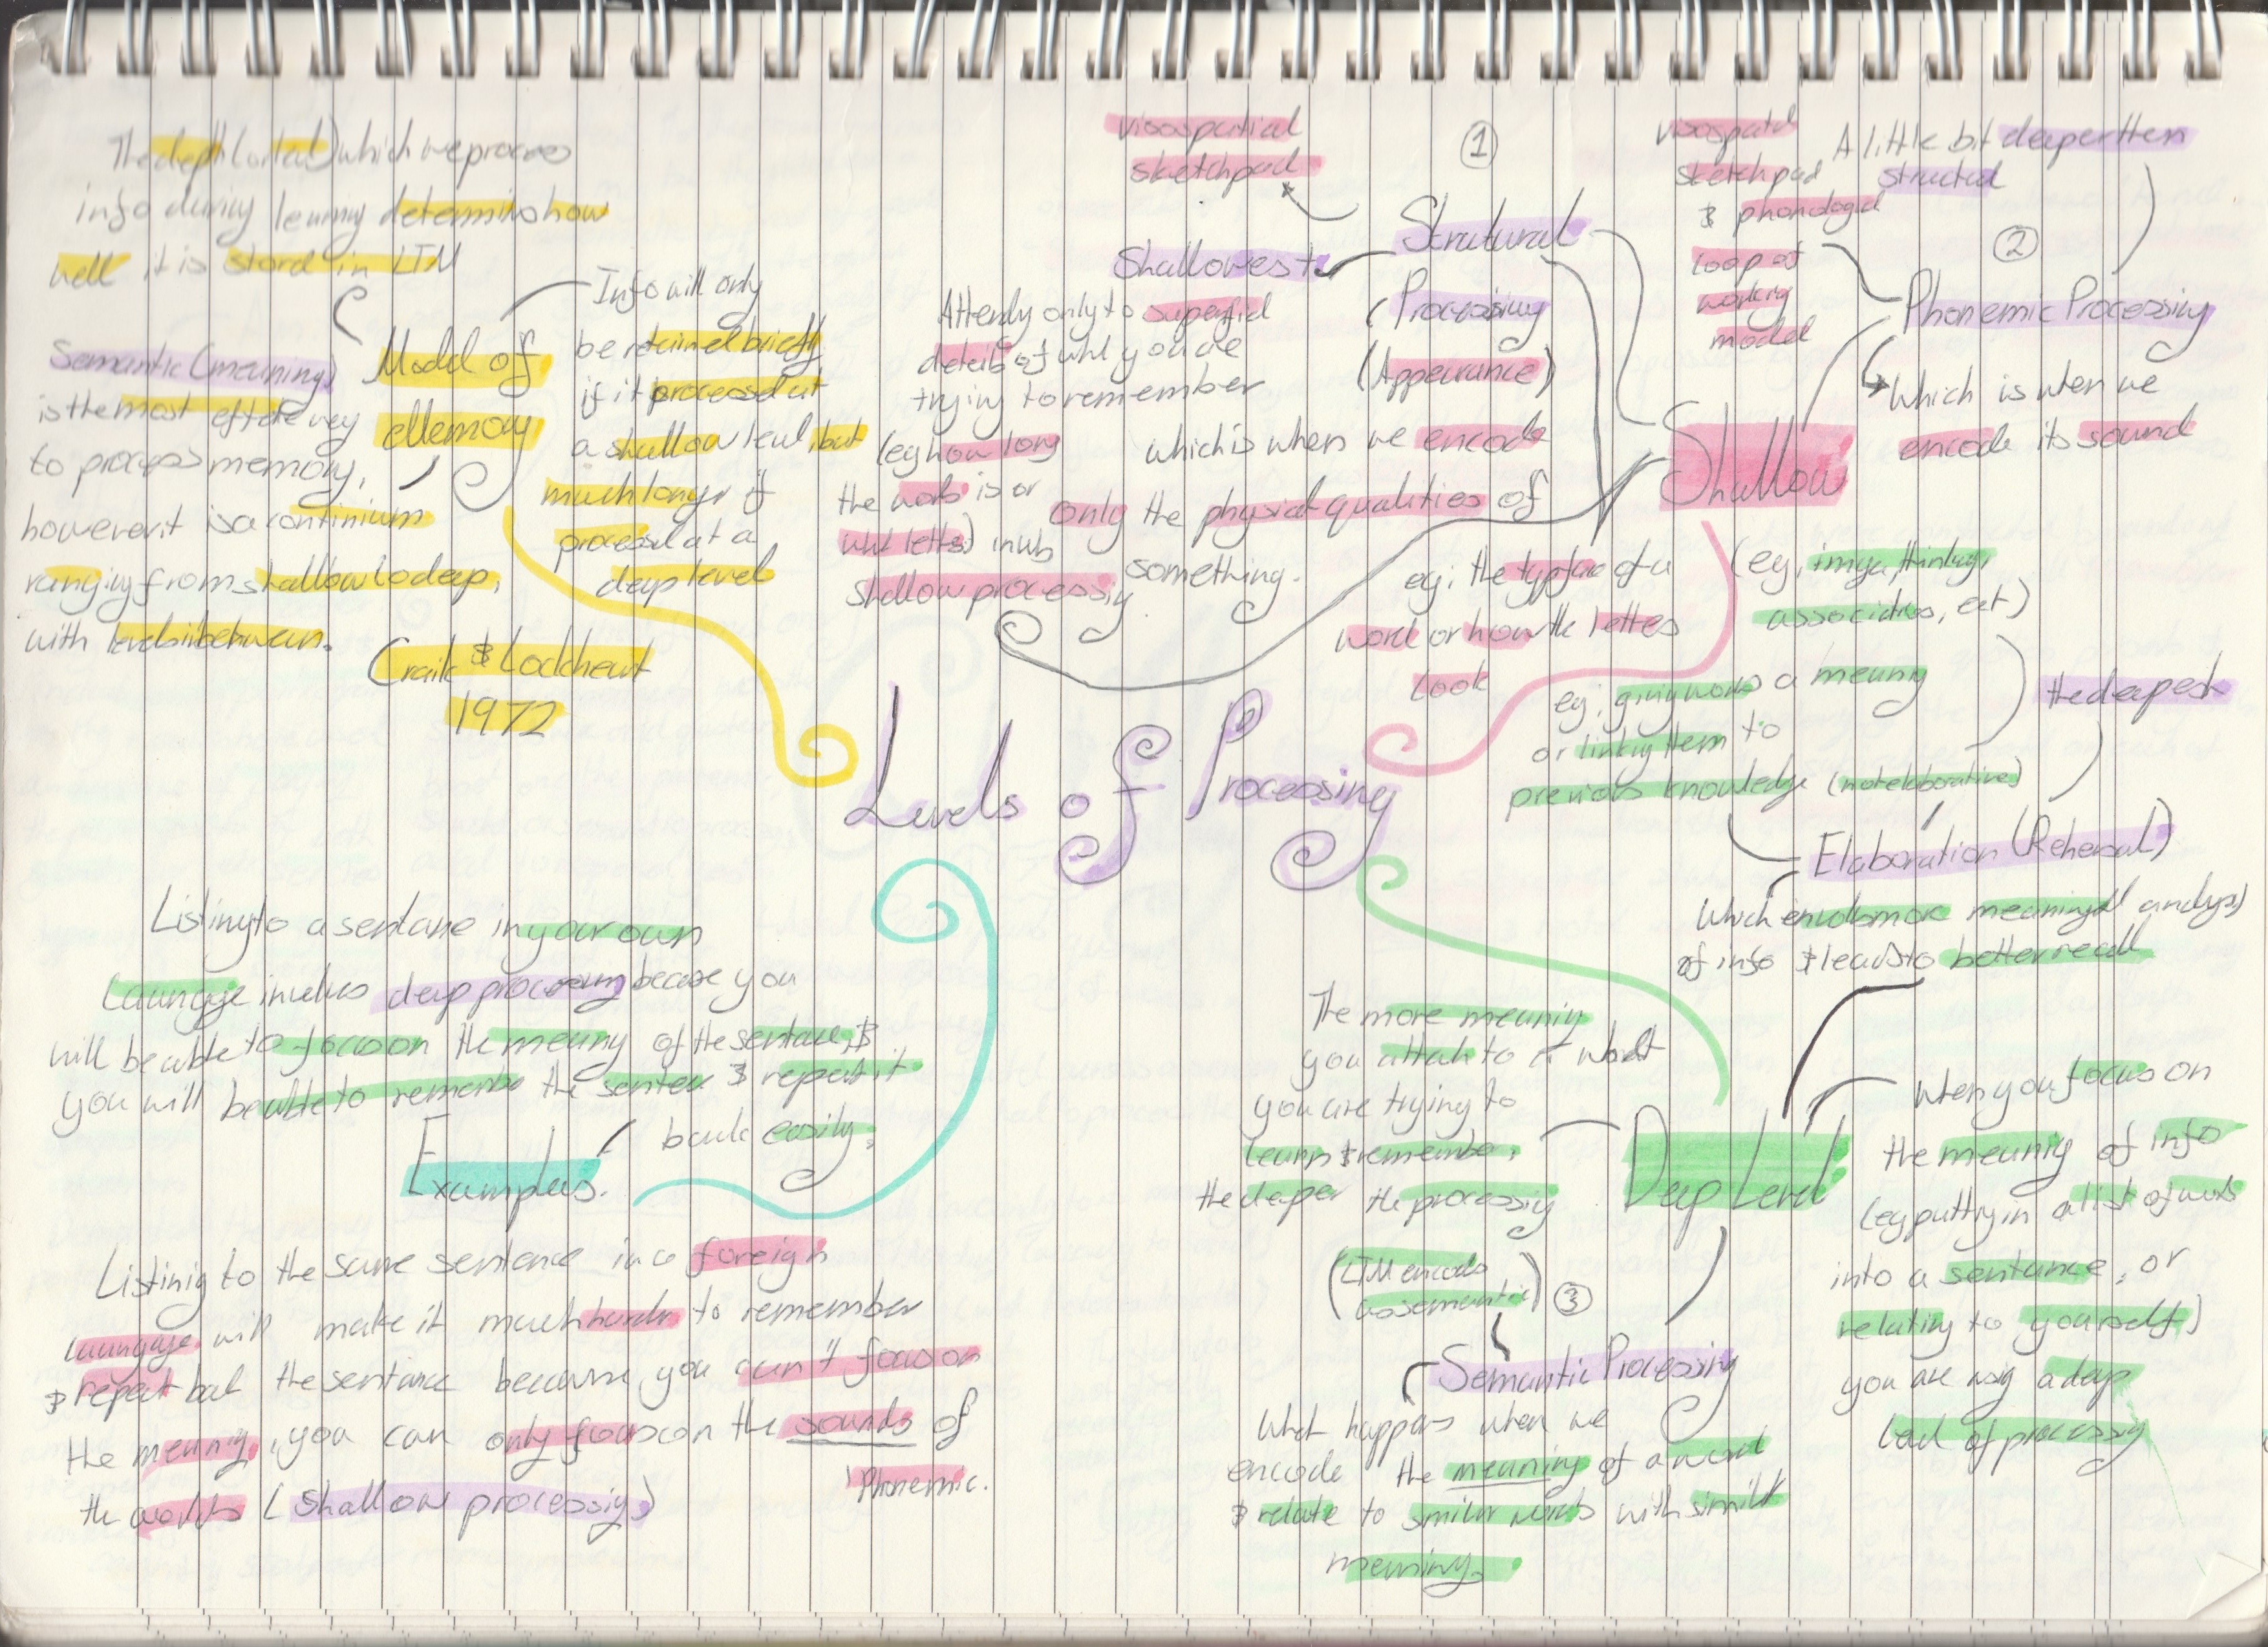 Levels of Processing
The depth (or level) which we process
info during learning determins how
well it is stord in LTM
Model of
Memory
Info will only
be retained briefly
if it processed at
a shallow level, but
much longer if
processed at a
deep level
Semantic (meaning)
is the most effective way
to process memory,
however it is a continium
ranging from shallow to deep,
with levels inbetween.
Craik & Lockheart
1972
visospatial
sketchpad
①
Structural
Processing
(Appearance)
Shallowest
which is when we encode
only the physical qualities of
something.
Attending only to superficial
details of what you are
trying to remember
(eg how long
the words is or
what letters) involves
shallow processing
eg; the typface of a
word or how the letters
look
Shallow
visospatial
sketchpad
& phonological
loop of
working
model
A little bit deeper then
structural
②
Phonemic Processing
Which is when we
encode its sound
(eg, image, thinking,
associations, ect)
eg; giving words a meaning
or linking them to
previous knowledge (not elaborative)
the deepest
Elaboration (Rehersal)
Which involves more meaningful analysis
of info & leads to better recall
Deep Level
The more meaning
you attach to what
you are trying to
learn & remember,
the deeper the processing
When you focus on
the meaning of info
(eg putting in a list of words
into a sentance, or
relating to yourself)
you are using a deep
level of processing
(LTM encods
as semantic)
③
Semantic Processing
What happens when we
encode the meaning of a word
& relate to similar words with similar
meaning.
Examples.
Listing to a sentane in your own
Laungage involves deep processing because you
will be able to focus on the meaning of the sentance, &
you will be able to remember the sentence & repeat it
back easily.
Listinig to the same sentence in a foreign
Laungage will make it much harder to remember
& repeat bak the sentance because you can't focus on
the meaning, you can only focus on the sounds of
the words (Shallow processing)
Phonemic.